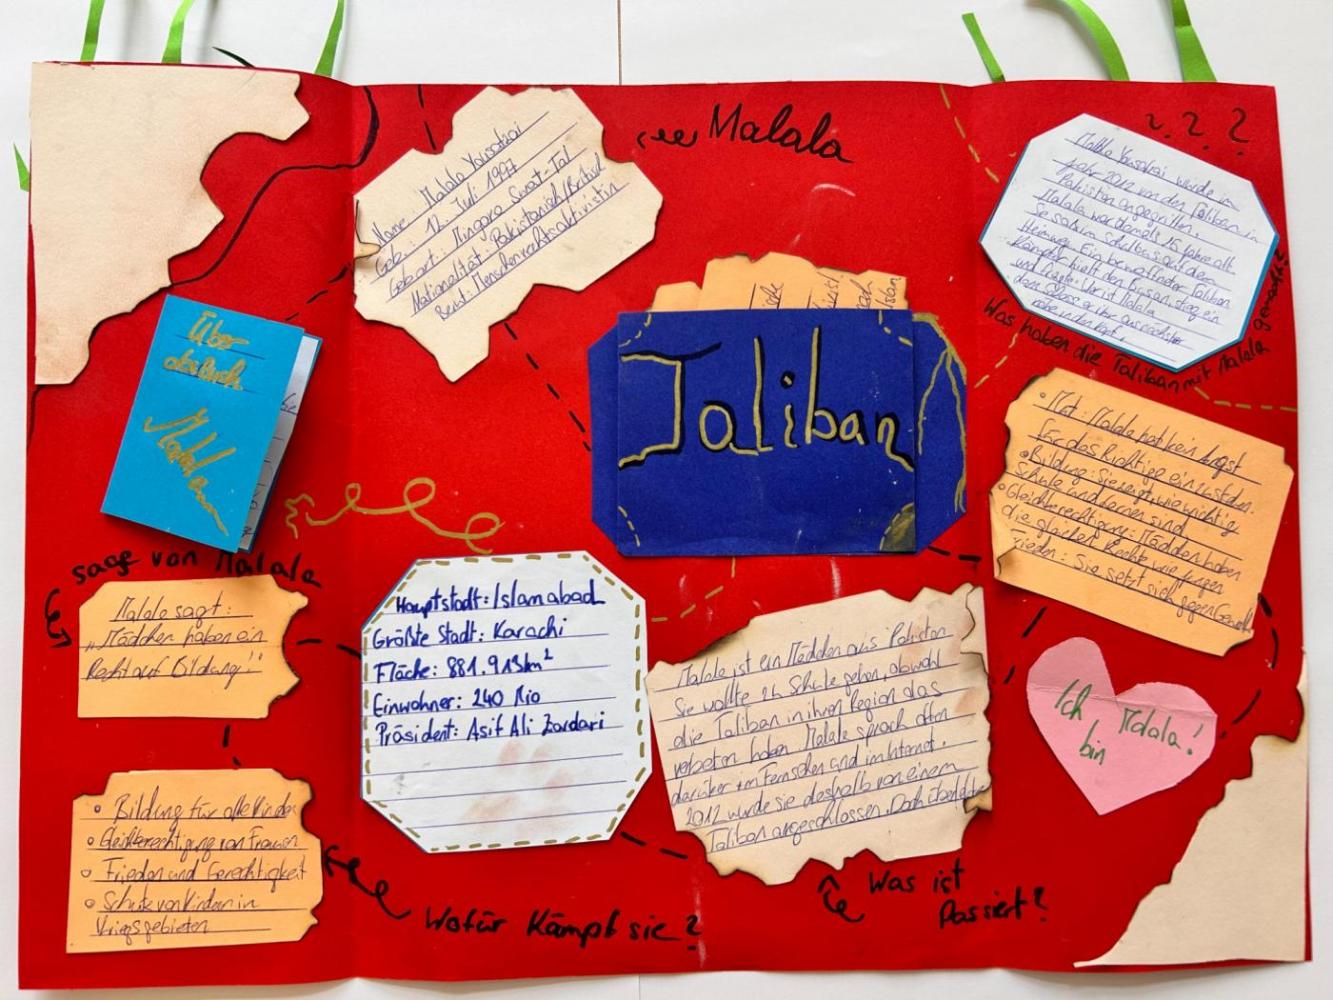 Malala
Name: Malala Yousafzai
Geb.: 12. Juli 1997
Geb.ort: Mingora Swat-Tal
Nationalität: Pakistanisch/Britisch
Beruf: Menschenrechtsaktivistin
? ? ?
Malala Yousafzai wurde im
Jahr 2012 von den Taliban in
Pakistan angegriffen.
Malala war damals 15 Jahre alt
Sie saß im Schulbus auf dem
Heimweg. Ein bewaffneter Taliban
Kämpfer hielt den Bus an, stieg ein
und fragte: Wer ist Malala
dann schoss er ihr aus nächster
Nähe in den Kopf.
Was haben die Taliban mit Malala gemacht?
Über
das Buch
Malala
Taliban
• Mut: Malala hat kein Angst
für das Richtige einzustehen.
• Bildung: Sie zeigt, wie wichtig
Schule und Lernen sind
• Gleichberechtigung: Mädchen haben
die gleichen Rechte wie Jungen
Frieden: Sie setzt sich gegen Gewalt
saaf von Malala
Malala sagt:
„Mädchen haben ein
Recht auf Bildung!"
Hauptstadt: Islamabad
Größte Stadt: Karachi
Fläche: 881.913km²
Einwohner: 240 Mio
Präsident: Asif Ali Zardari
Malala ist ein Mädchen aus Pakistan
Sie wollte zu Schule gehen, obwohl
die Taliban in ihren Region das
verboten haben Malala sprach offen
darüber im Fernsehen und im Internet.
2012 wurde sie deshalb von einem
Taliban angeschlossen. Doch überlebte
Was ist
Passiert?
Ich
bin
Malala!
• Bildung für alle Kinder
• Gleichberechtigung von Frauen
• Frieden und Gerechtigkeit
• Schutz von Kindern in
Kriegsgebieten
Wofür Kämpft sie?